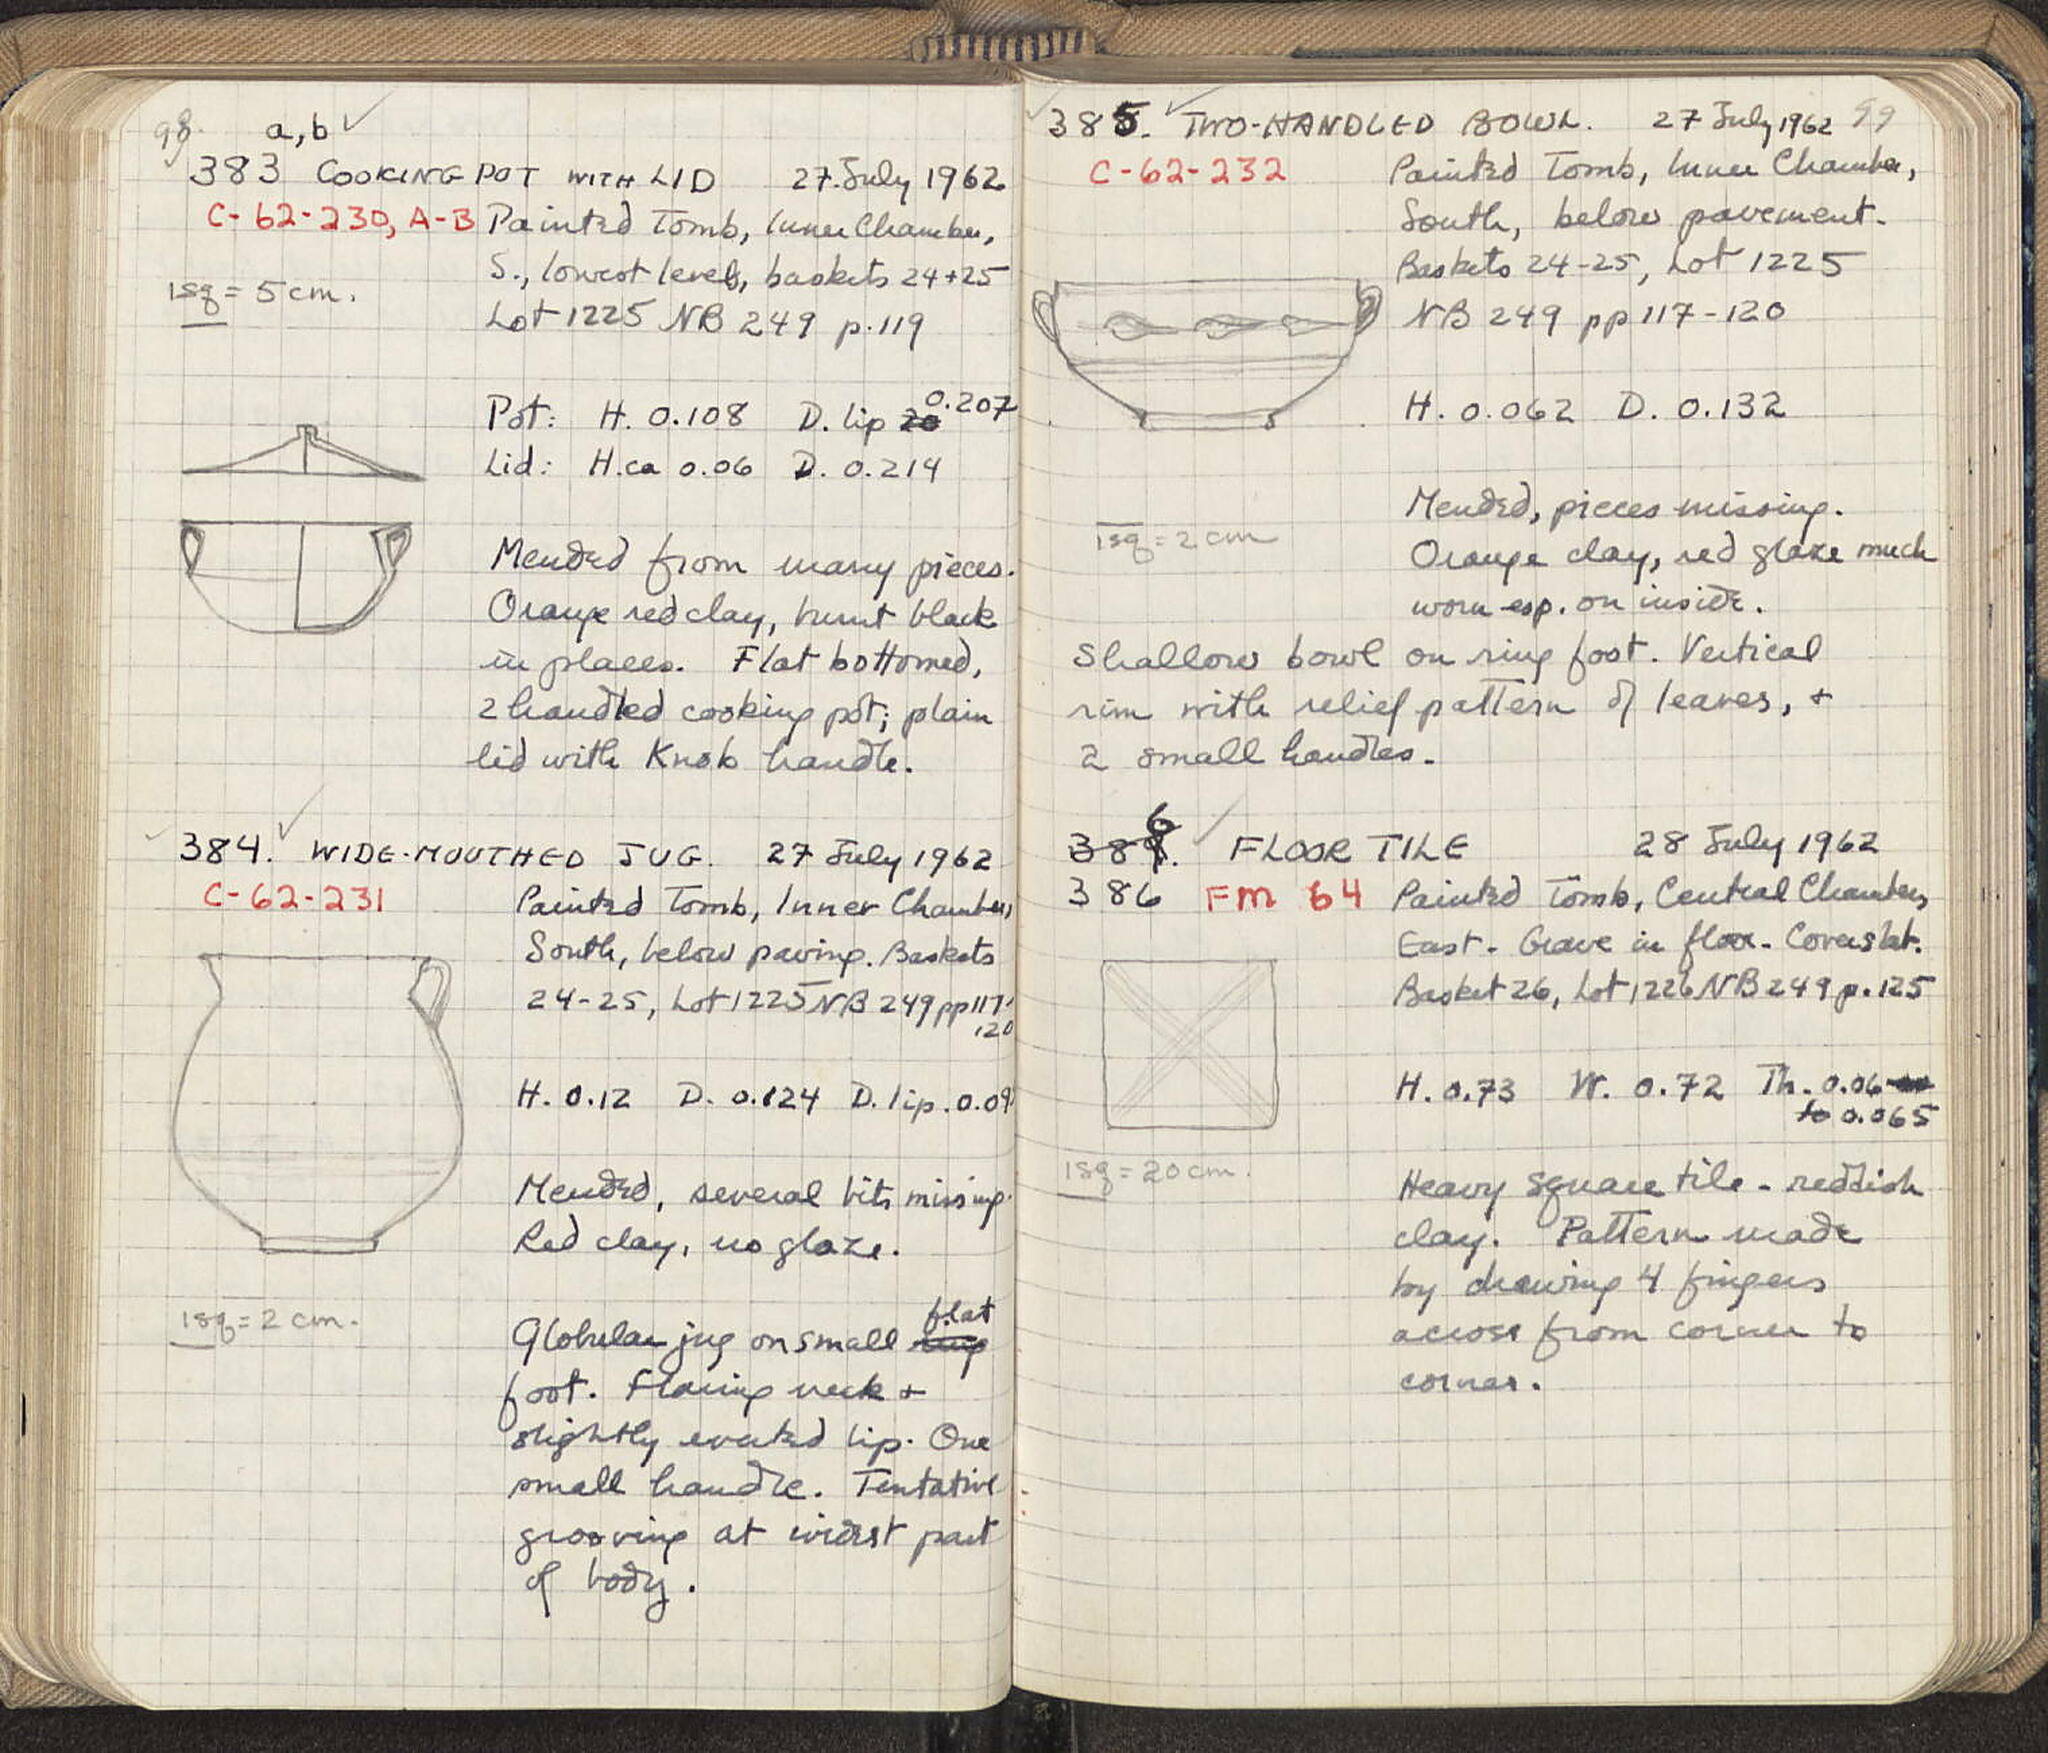 98.
a, b ✓
383 COOKING POT WITH LID 27 July 1962
C-62-230, A-B Painted Tomb, Inner Chamber,
S., lowest level, baskets 24+25
1 sq = 5 cm.
Lot 1225 NB 249 p. 119
Pot: H. 0.108 D. lip 0.207
Lid: H. ca 0.06 D. 0.214
Mended from many pieces.
Orange red clay, burnt black
in places. Flat bottomed,
2 handled cooking pot; plain
lid with knob handle.
384. ✓ WIDE-MOUTHED JUG. 27 July 1962
C-62-231 Painted Tomb, Inner Chamber,
South, below paving. Baskets
24-25, Lot 1225 NB 249 pp 117-
120
H. 0.12 D. 0.124 D. lip. 0.09
Mended, several bits missing.
Red clay, no glaze.
1 sq = 2 cm.
flat
Globular jug on small ring
foot. Flaring neck +
slightly everted lip. One
small handle. Tentative
grooving at widest part
of body.
385. ✓ TWO-HANDLED BOWL. 27 July 1962 99
C-62-232 Painted Tomb, Inner Chamber,
South, below pavement.
Baskets 24-25, Lot 1225
NB 249 pp 117-120
H. 0.062 D. 0.132
Mended, pieces missing.
1 sq = 2 cm
Orange clay, red glaze much
worn esp. on inside.
Shallow bowl on ring foot. Vertical
rim with relief pattern of leaves, +
2 small handles.
6
389. ✓ FLOOR TILE 28 July 1962
386 FM 64 Painted Tomb, Central Chamber,
East. Grave in floor. Coverslab.
Basket 26, Lot 1226 NB 249 p. 125
H. 0.73 W. 0.72 Th. 0.06
to 0.065
1 sq = 20 cm.
Heavy square tile - reddish
clay. Pattern made
by drawing 4 fingers
across from corner to
corner.